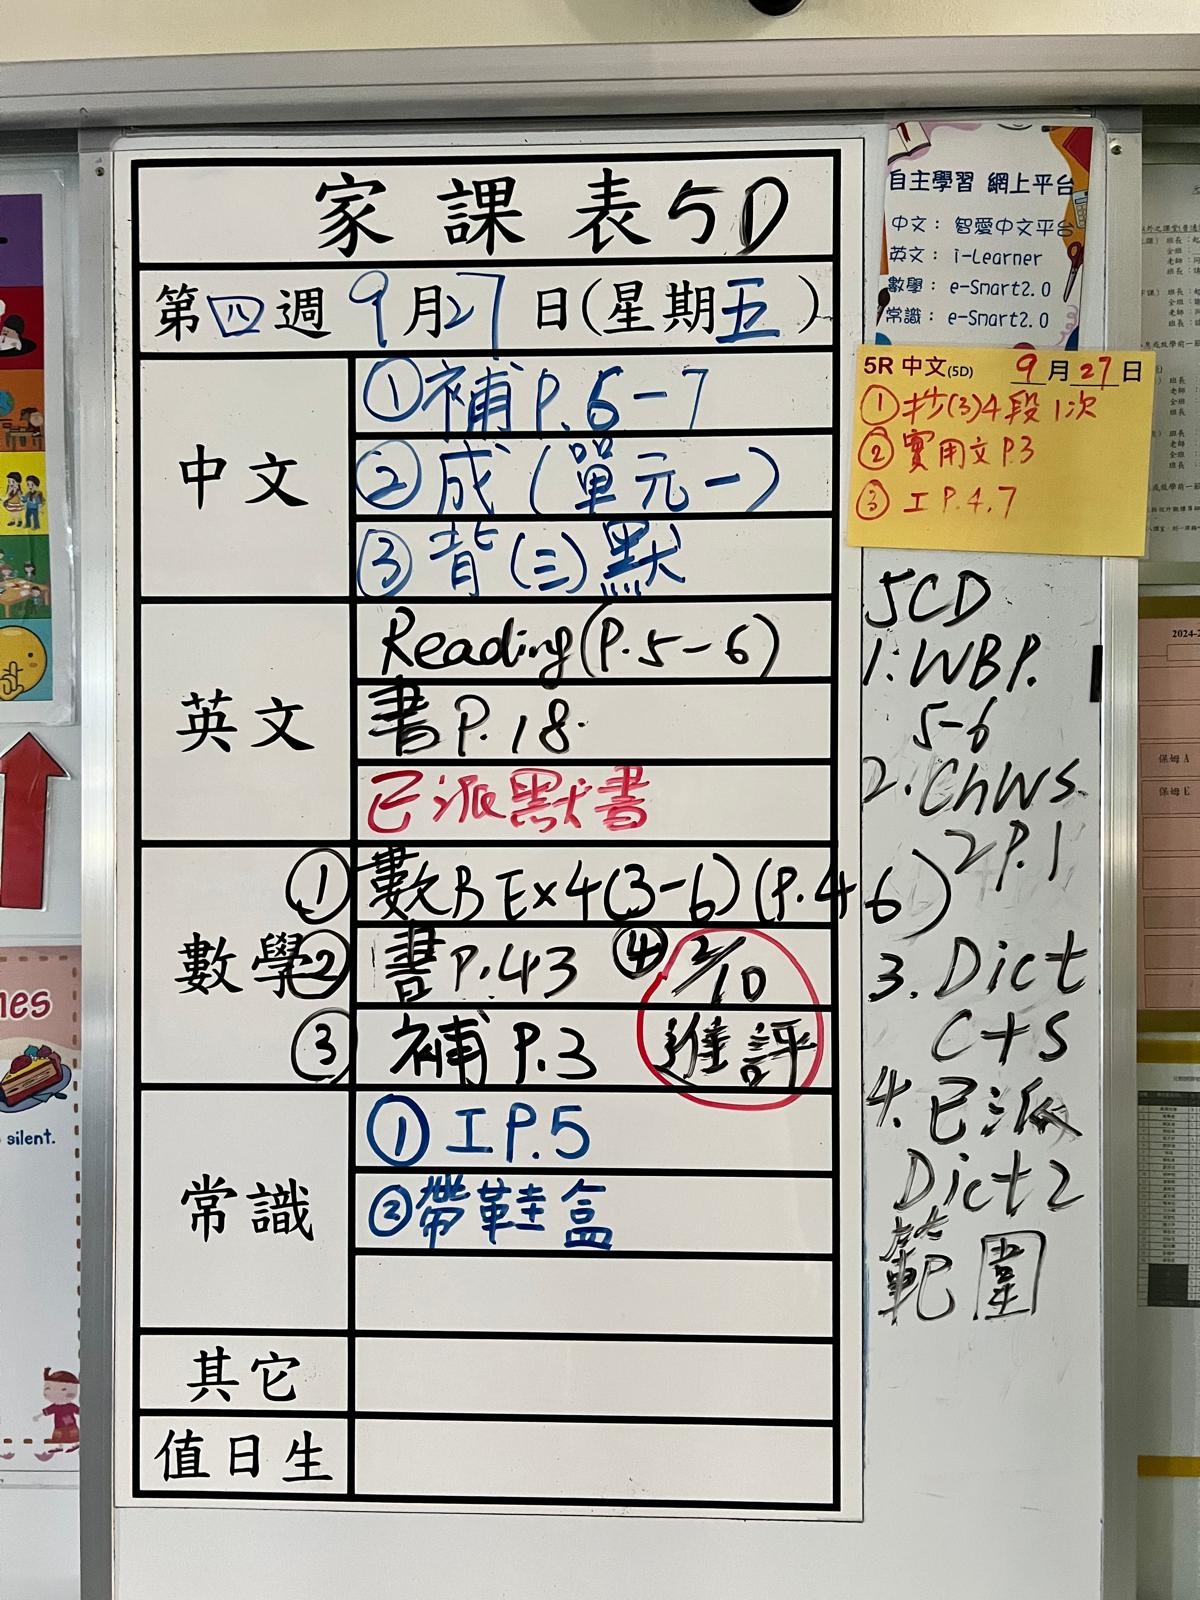 家課表5D
第四週 9月27日(星期五)
中文
①補P.6-7
②成(單元一)
③背(三)默
英文
Reading(P.5-6)
書P.18
已派默書
數學
① 數B Ex4(3-6)(P.4-6)
② 書P.43 ④ 2/10
③ 補P.3 進評
常識
①工P.5
②帶鞋盒
其它
值日生
自主學習 網上平台
中文： 智愛中文平台
英文： i-Learner
數學： e-Smart2.0
常識： e-Smart2.0
5R 中文(5D) 9月27日
①抄(3)4段1次
②實用文P.3
③工P.4,7
5CD
1.WBP.
5-6
2.ChWS.
2P.1
3.Dict
C+S
4.已派
Dict 2
範圍
2024-2
保姆A
保姆E
mes
silent.